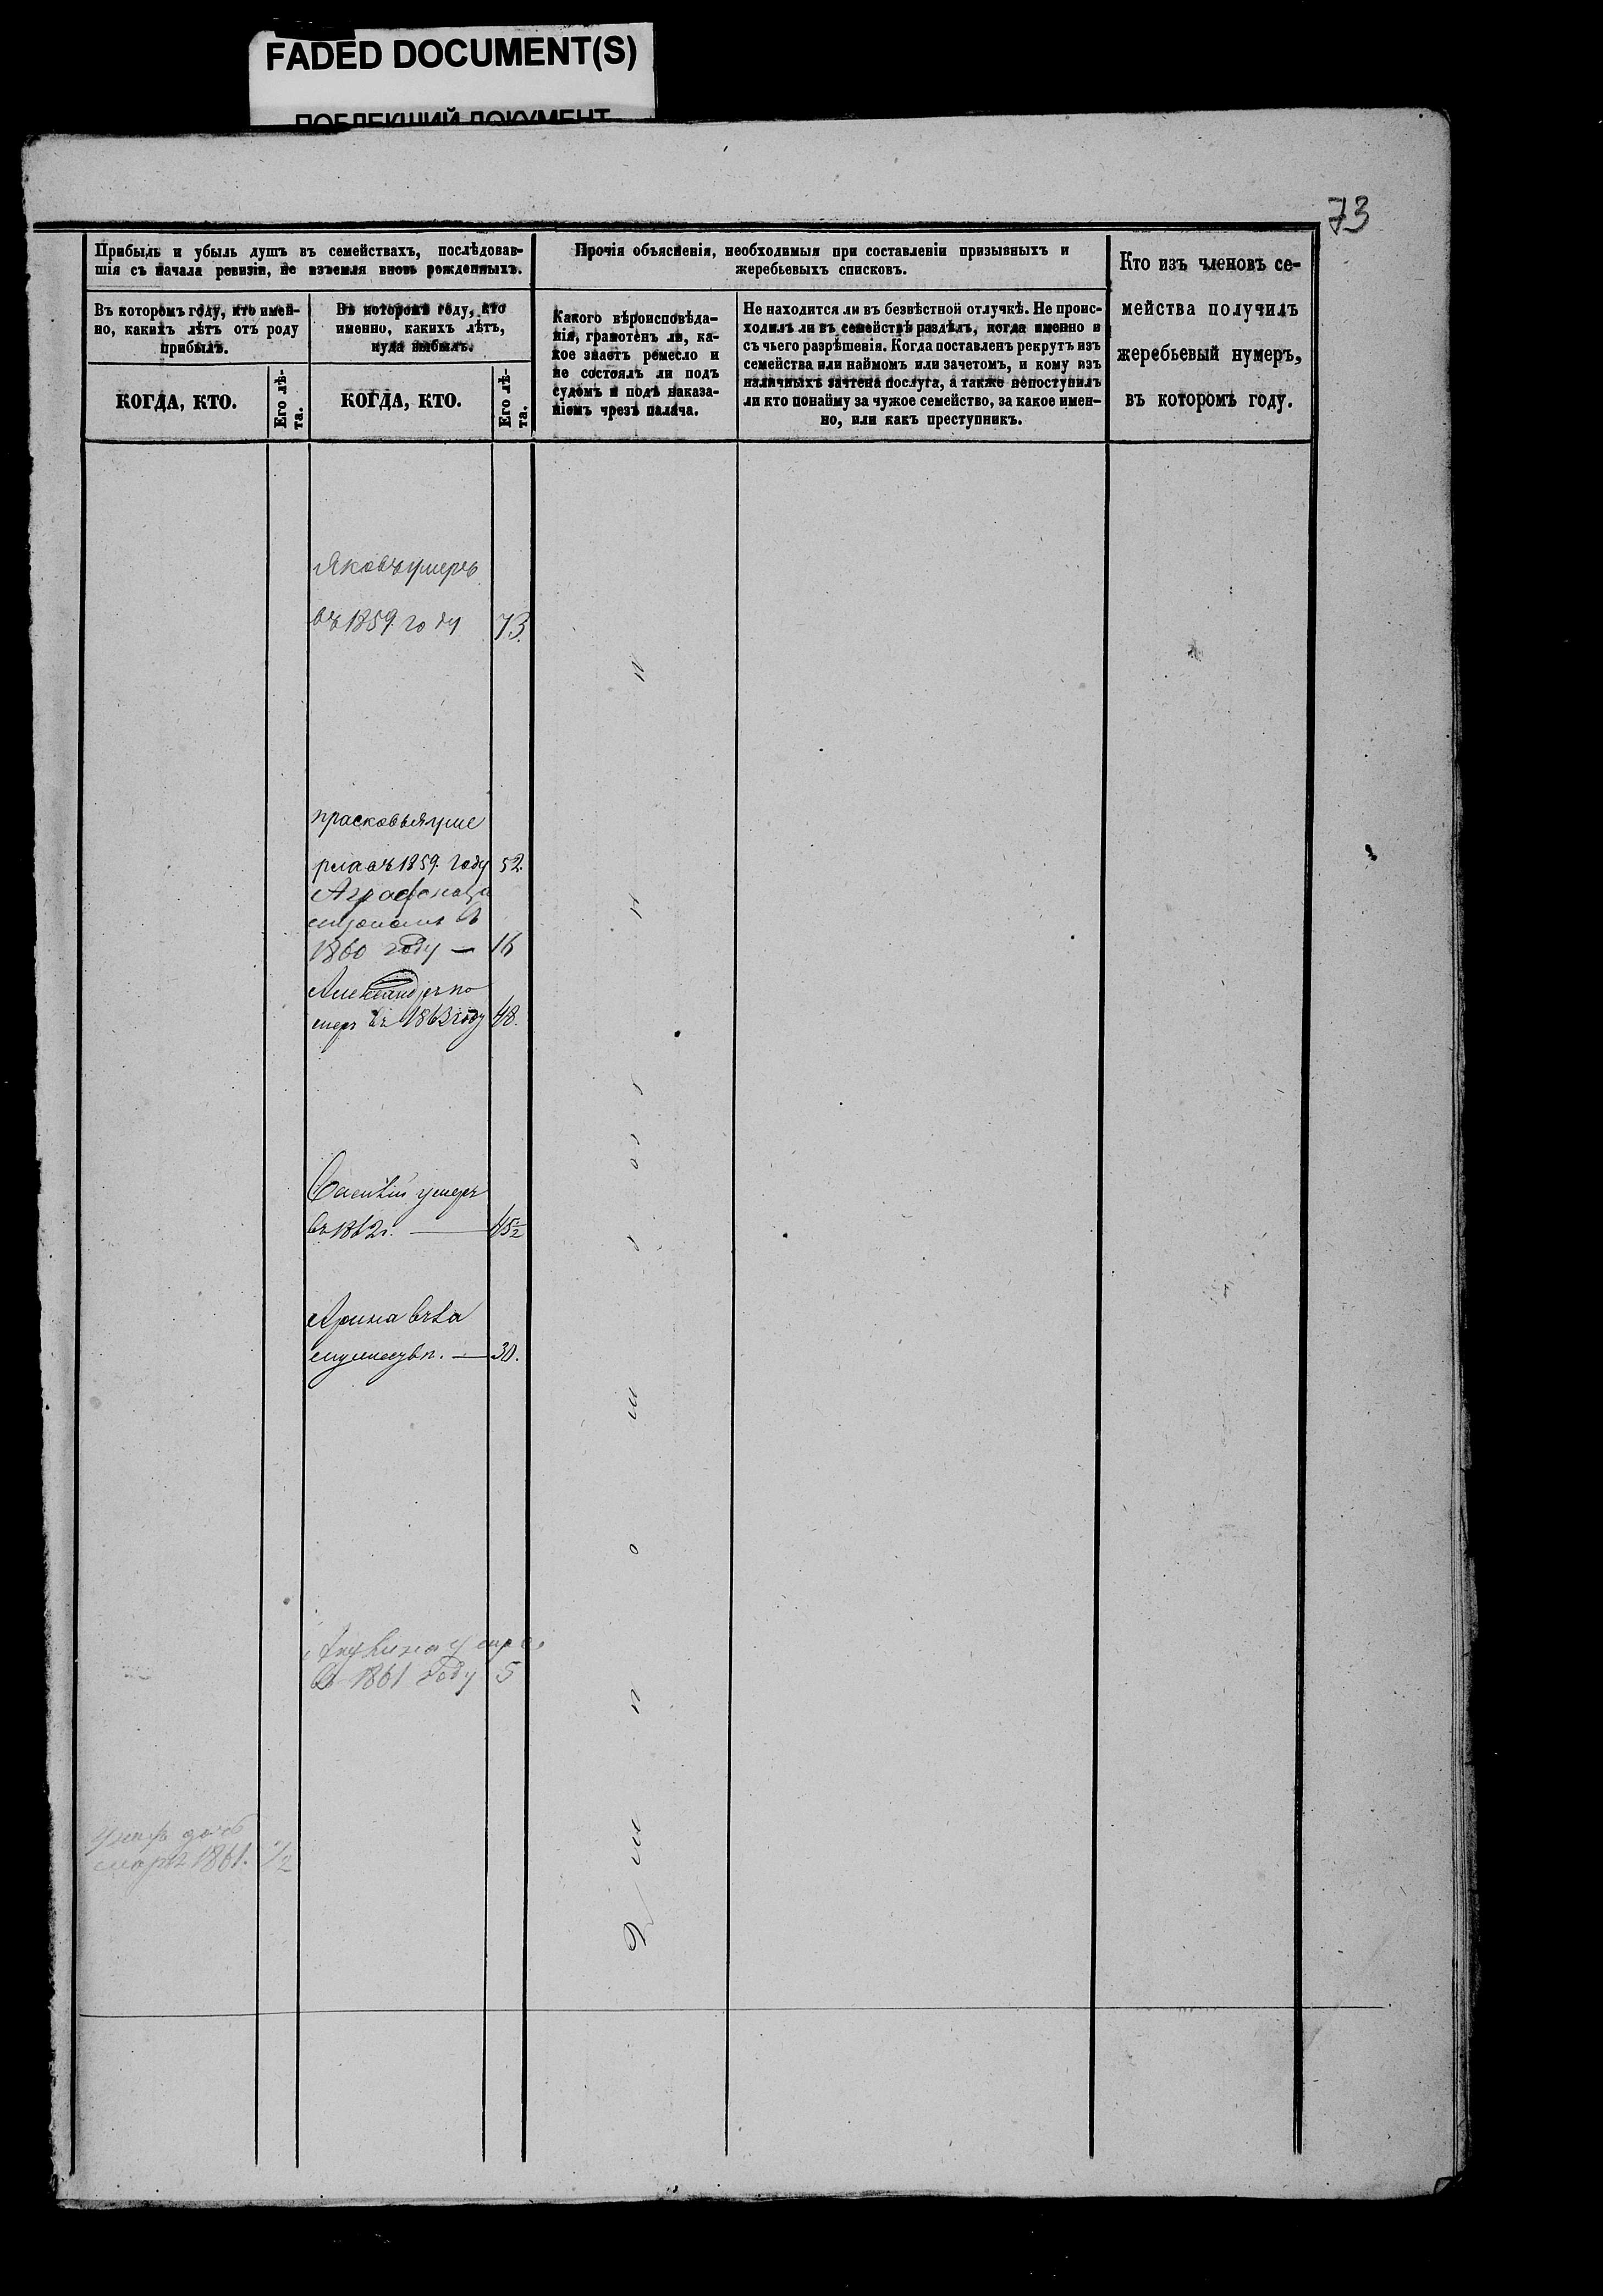 FADED DOCUMENT(S)
ПОБЛЕКШИЙ ДОКУМЕНТ
73
Прибыль и убыль душъ въ семействахъ, послѣдовав-
шія съ начала ревизіи, не изъемля вновь рожденныхъ.
Въ которомъ году, кто имен-
но, какихъ лѣтъ отъ роду
прибылъ.
КОГДА, КТО.
Его лѣ-
та.
Въ которомъ году, кто
именно, какихъ лѣтъ,
куда выбылъ.
КОГДА, КТО.
Его лѣ-
та.
Прочія объясненія, необходимыя при составленіи призывныхъ и
жеребьевыхъ списковъ.
Какого вѣроисповѣда-
нія, грамотенъ ли, ка-
кое знаетъ ремесло и
не состоялъ ли подъ
судомъ и подъ наказа-
ніемъ чрезъ палача.
Не находится ли въ безвѣстной отлучкѣ. Не проис-
ходилъ ли въ семействѣ раздѣлъ, когда именно и
съ чьего разрѣшенія. Когда поставленъ рекрутъ изъ
семейства или наймомъ или зачетомъ, и кому изъ
наличныхъ зачтена послуга, а также непоступилъ
ли кто понайму за чужое семейство, за какое имен-
но, или какъ преступникъ.
Кто изъ членовъ се-
мейства получилъ
жеребьевый нумеръ,
въ которомъ году.
Яковъ умеръ
въ 1859. году 73.
прасковья уме
рла въ 1859. году 52.
Аграфена
1860 году — 16
Александръ по
меръ въ 1863 году 48.
Василій умеръ
въ 1862 г. —
Арина въ
— 30.
1861 году 5
дочь
1861. 1/2